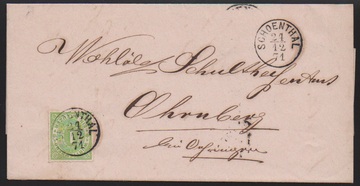 SCHOENTHAL
21
12
71
Wohllöbl. Schultheißenamt
Ohrnberg
bei Oehringen
SCHOENTHAL
21
12
71